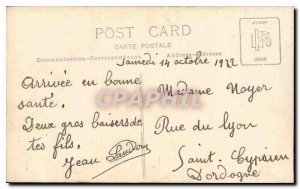 POST CARD
CARTE POSTALE
Communication-Correspondance Address-Adresse
STAMP
HERE
Samedi 14 octobre 1922
Arrivée en bonne
santé.
Deux gros baisers de
tes fils.
Jean
Madame Noyer
Rue du Lyon
Saint. Cyprien
Dordogne
CPARAMA.COM